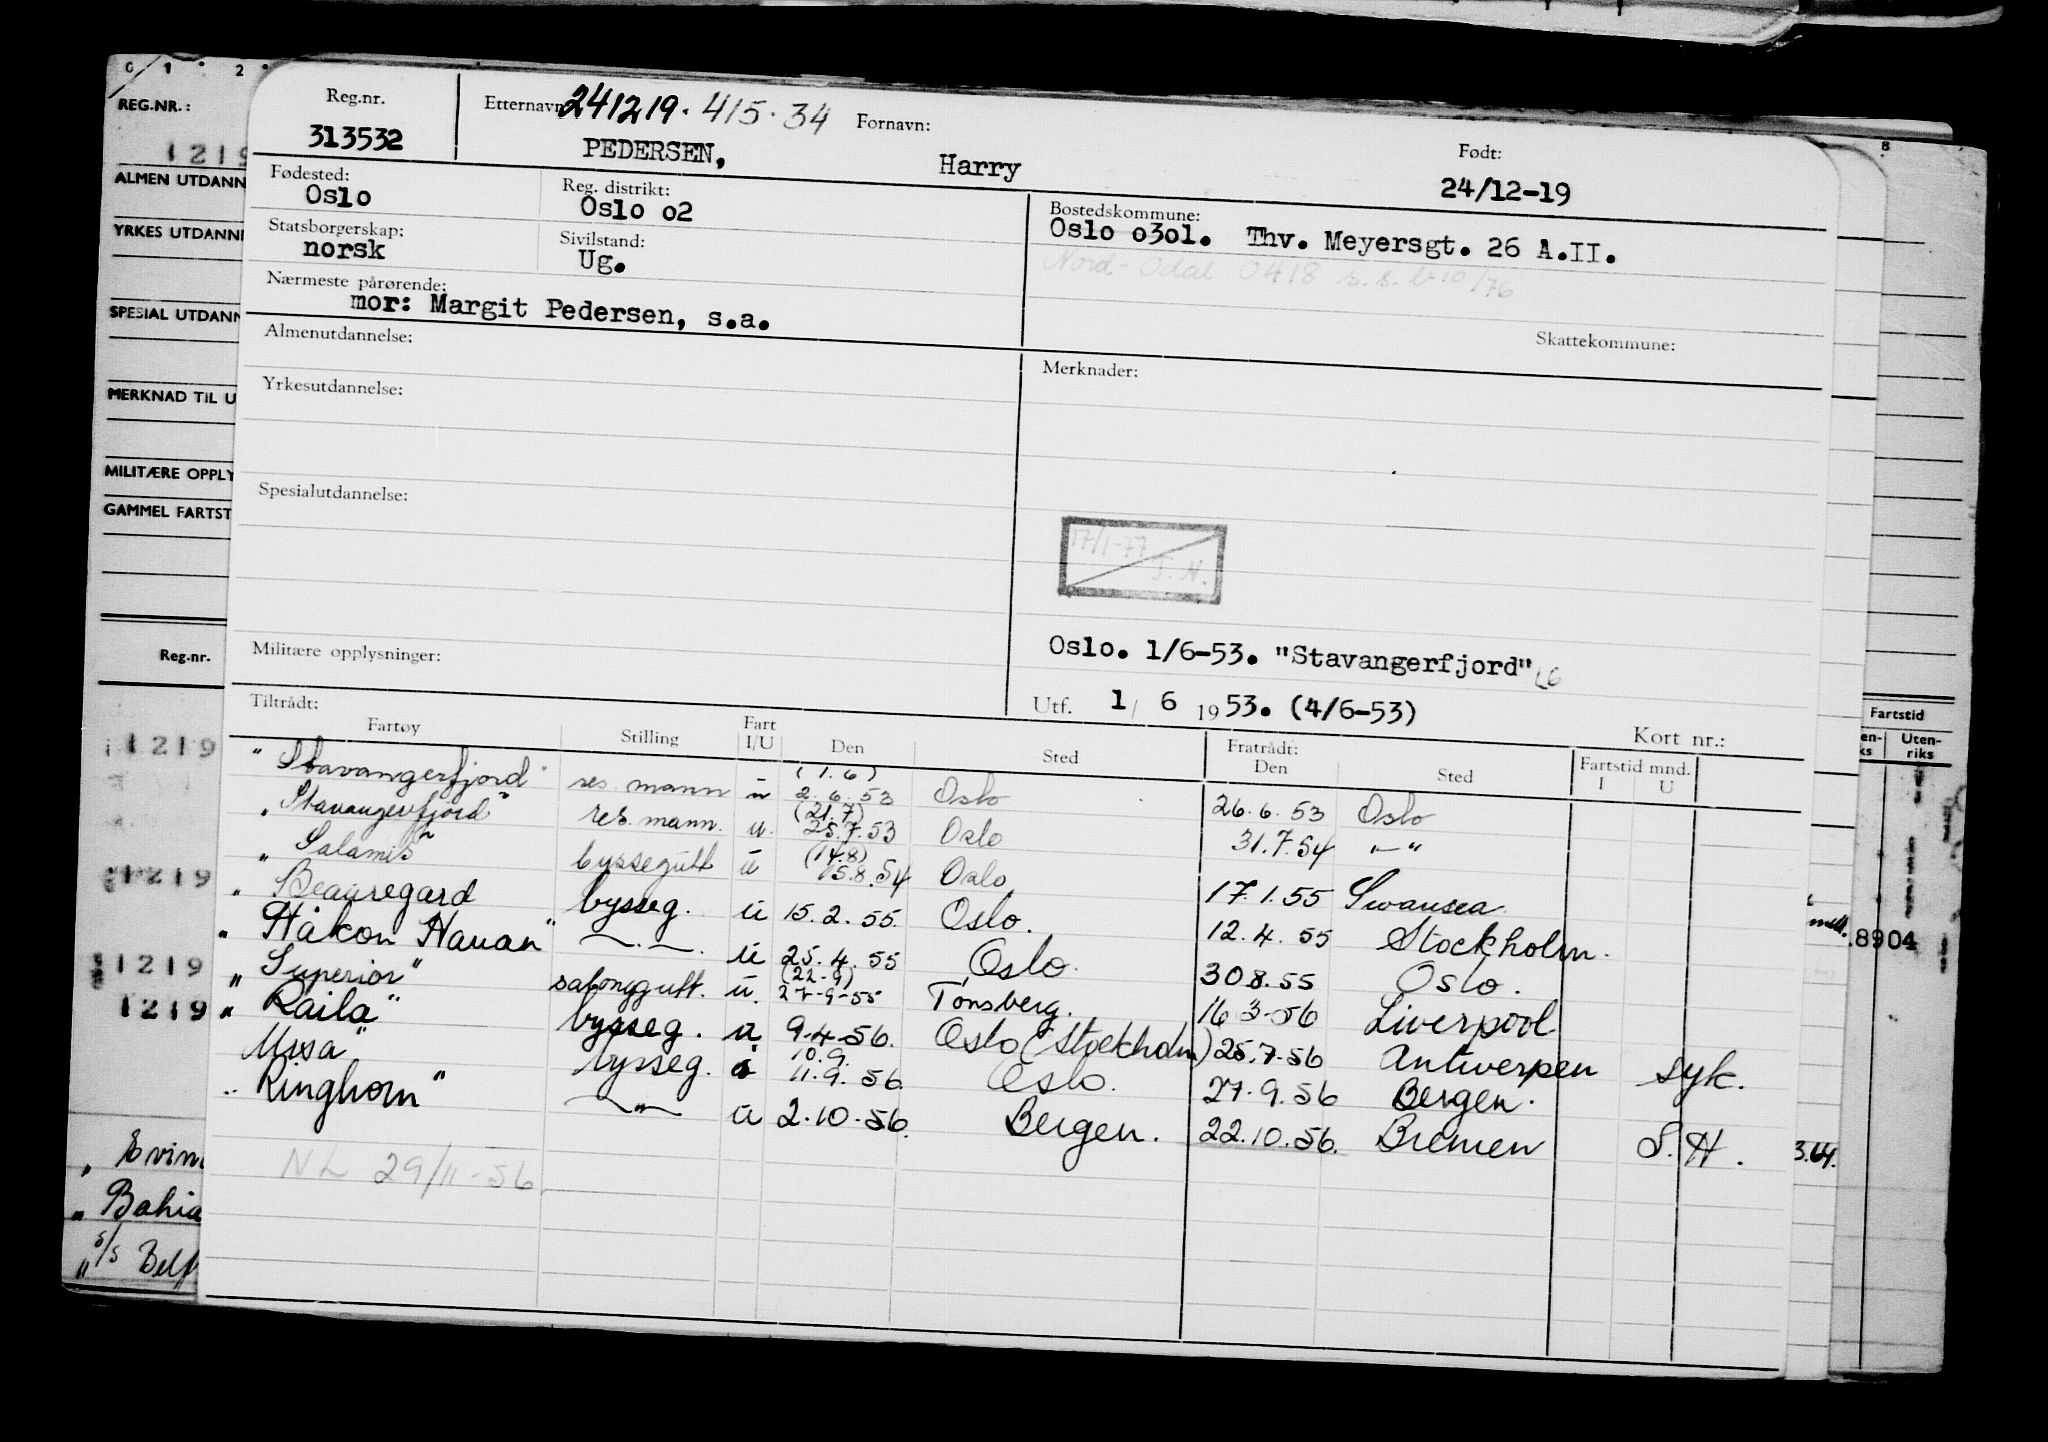 0 1 2
REG.NR.:
1219
ALMEN UTDANN
YRKES UTDANN
SPESIAL UTDANN
MERKNAD TIL U
MILITÆRE OPPLY
GAMMEL FARTST
Reg.nr.
1219
1219
1219
1219
Reg.nr. Etternavn: 241219.415.34 Fornavn: Født:
313532 PEDERSEN, Harry 24/12-19
Fødested: Reg. distrikt: Bostedskommune:
Oslo Oslo o2 Oslo o3o1. Thv. Meyersgt. 26 A.II.
Statsborgerskap: Sivilstand: Nord-Odal 0418 s.s. b 10/76
norsk Ug.
Nærmeste pårørende: Skattekommune:
mor: Margit Pedersen, s.a.
Almenutdannelse: Merknader:
Yrkesutdannelse:
Spesialutdannelse:
17/1-77
T.N.
Militære opplysninger: Oslo. 1/6-53. "Stavangerfjord"
Utf. 1/6 1953. (4/6-53)
Tiltrådt: Fratrådt: Kort nr.:
Fartøy Stilling Fart I/U Den Sted Den Sted Fartstid mnd. I U
"Stavangerfjord" res. mann u (1.6) 2.6.53 Oslo 26.6.53 Oslo
"Stavangerfjord" res. mann. u. (21.7) 25.7.53 Oslo 31.7.54 -"-
"Salamis" byssegutt u (14.8) 15.8.54 Oslo 17.1.55 Swansea
"Beauregard bysseg. u 15.2.55. Oslo. 12.4.55 Stockholm.
"Håkon Hauan" -"-. u 25.4.55 Oslo. 30.8.55 Oslo.
"Superior" salonggutt. u. (22-9) 27-9-55 Tønsberg. 16 3-56 Liverpool
"Raila" bysseg. u 9.4-56. Oslo (Stockholm) 25.7-56 Antwerpen syk.
Mosa" bysseg. u 10.9. 11.9.56. Oslo. 27.9.56 Bergen.
"Ringhorn" -"- u 2.10.56. Bergen. 22.10.56. Bremen S.H.
NL 29/11-56.
"Evin
"Bahia
" s/s Belf
8
Fartstid
en-ks Uten-riks
.8904
3.64.